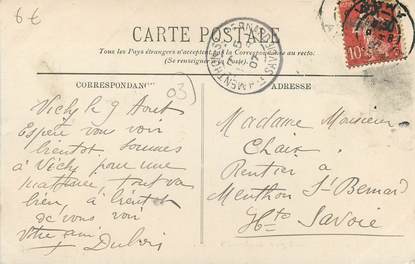 6€
CARTE POSTALE
Tous les Pays étrangers n'acceptent pas la Correspondance au recto.
(Se renseigner à la Poste).
CORRESPONDANCE
ADRESSE
03
MENTHON-ST-BERNARD
07
10
Vichy le 9 Aout
Espère vous voir
bientot sommes
à Vichy pour une
tout va
bien, à bientot
de vous voir
votre ami
Dubois
Madame Monsieur
Chair
Rentier à
Menthon St-Bernard
Hte Savoie